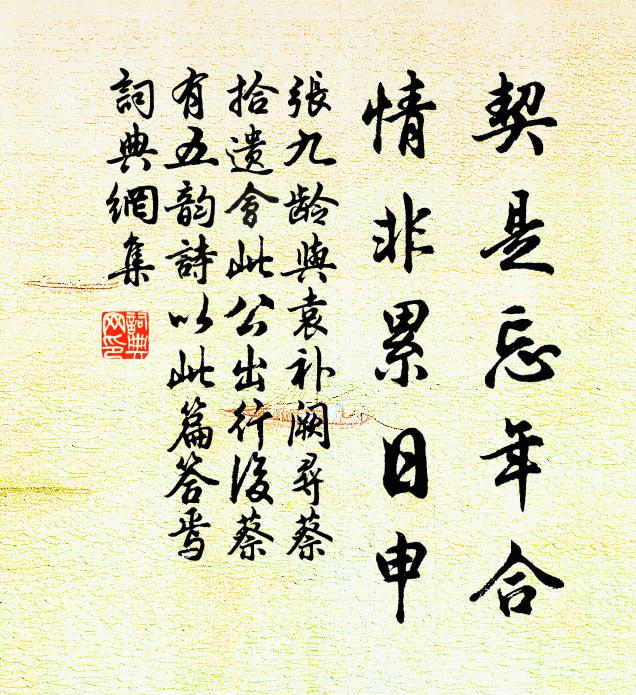 契是忘年合
情非累日申
張九齡與袁补阙尋蔡
拾遺會此公出行後蔡
有五韵詩以此篇答焉
詞典網集
詞典網印